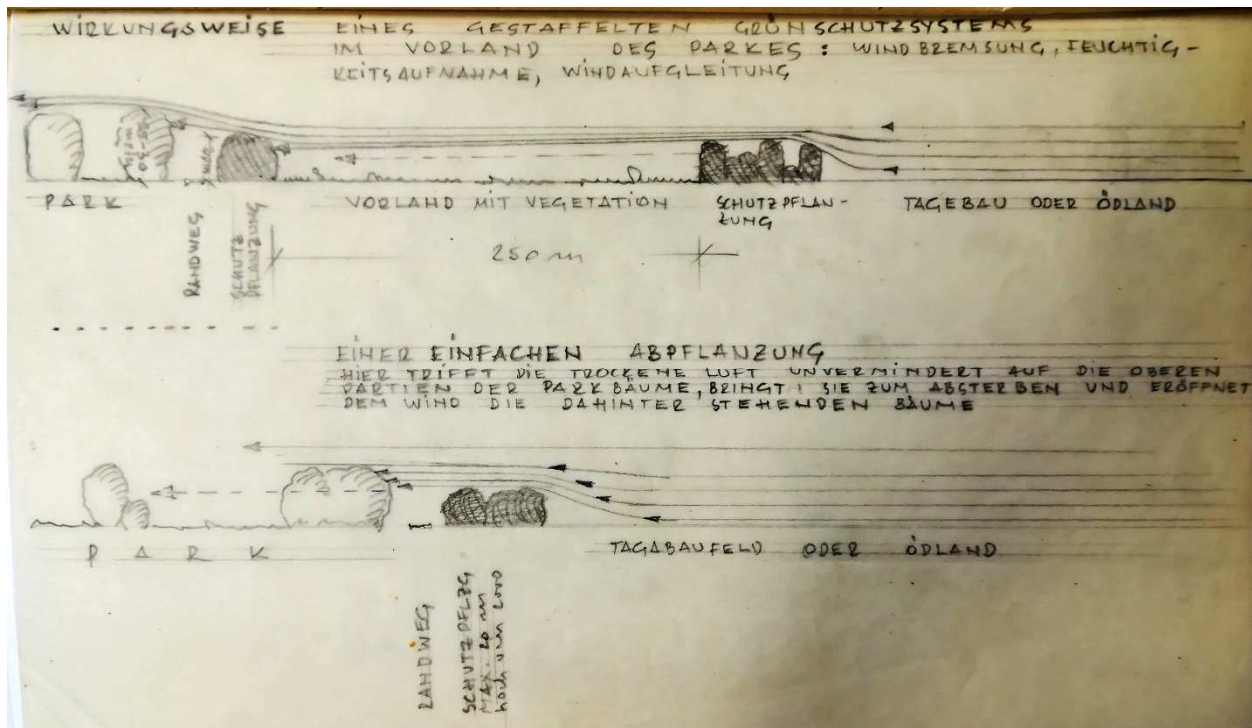 WIRKUNGSWEISE EINES GESTAFFELTEN GRÜNSCHUTZSYSTEMS
IM VORLAND DES PARKES : WINDBREMSUNG, FEUCHTIG-
KEITSAUFNAHME, WINDAUFGLEITUNG
PARK
RANDWEG
SCHUTZ
PFLANZUNG
VORLAND MIT VEGETATION
SCHUTZPFLAN-
ZUNG
TAGEBAU ODER ÖDLAND
250 m
EINER EINFACHEN ABPFLANZUNG
HIER TRIFFT DIE TROCKENE LUFT UNVERMINDERT AUF DIE OBEREN
PARTIEN DER PARKBÄUME, BRINGT SIE ZUM ABSTERBEN UND ERÖFFNET
DEM WIND DIE DAHINTER STEHENDEN BÄUME
PARK
TAGABAUFELD ODER ÖDLAND
RANDWEG
SCHUTZPFLZG
MAX. 20 m
hoch um 2000